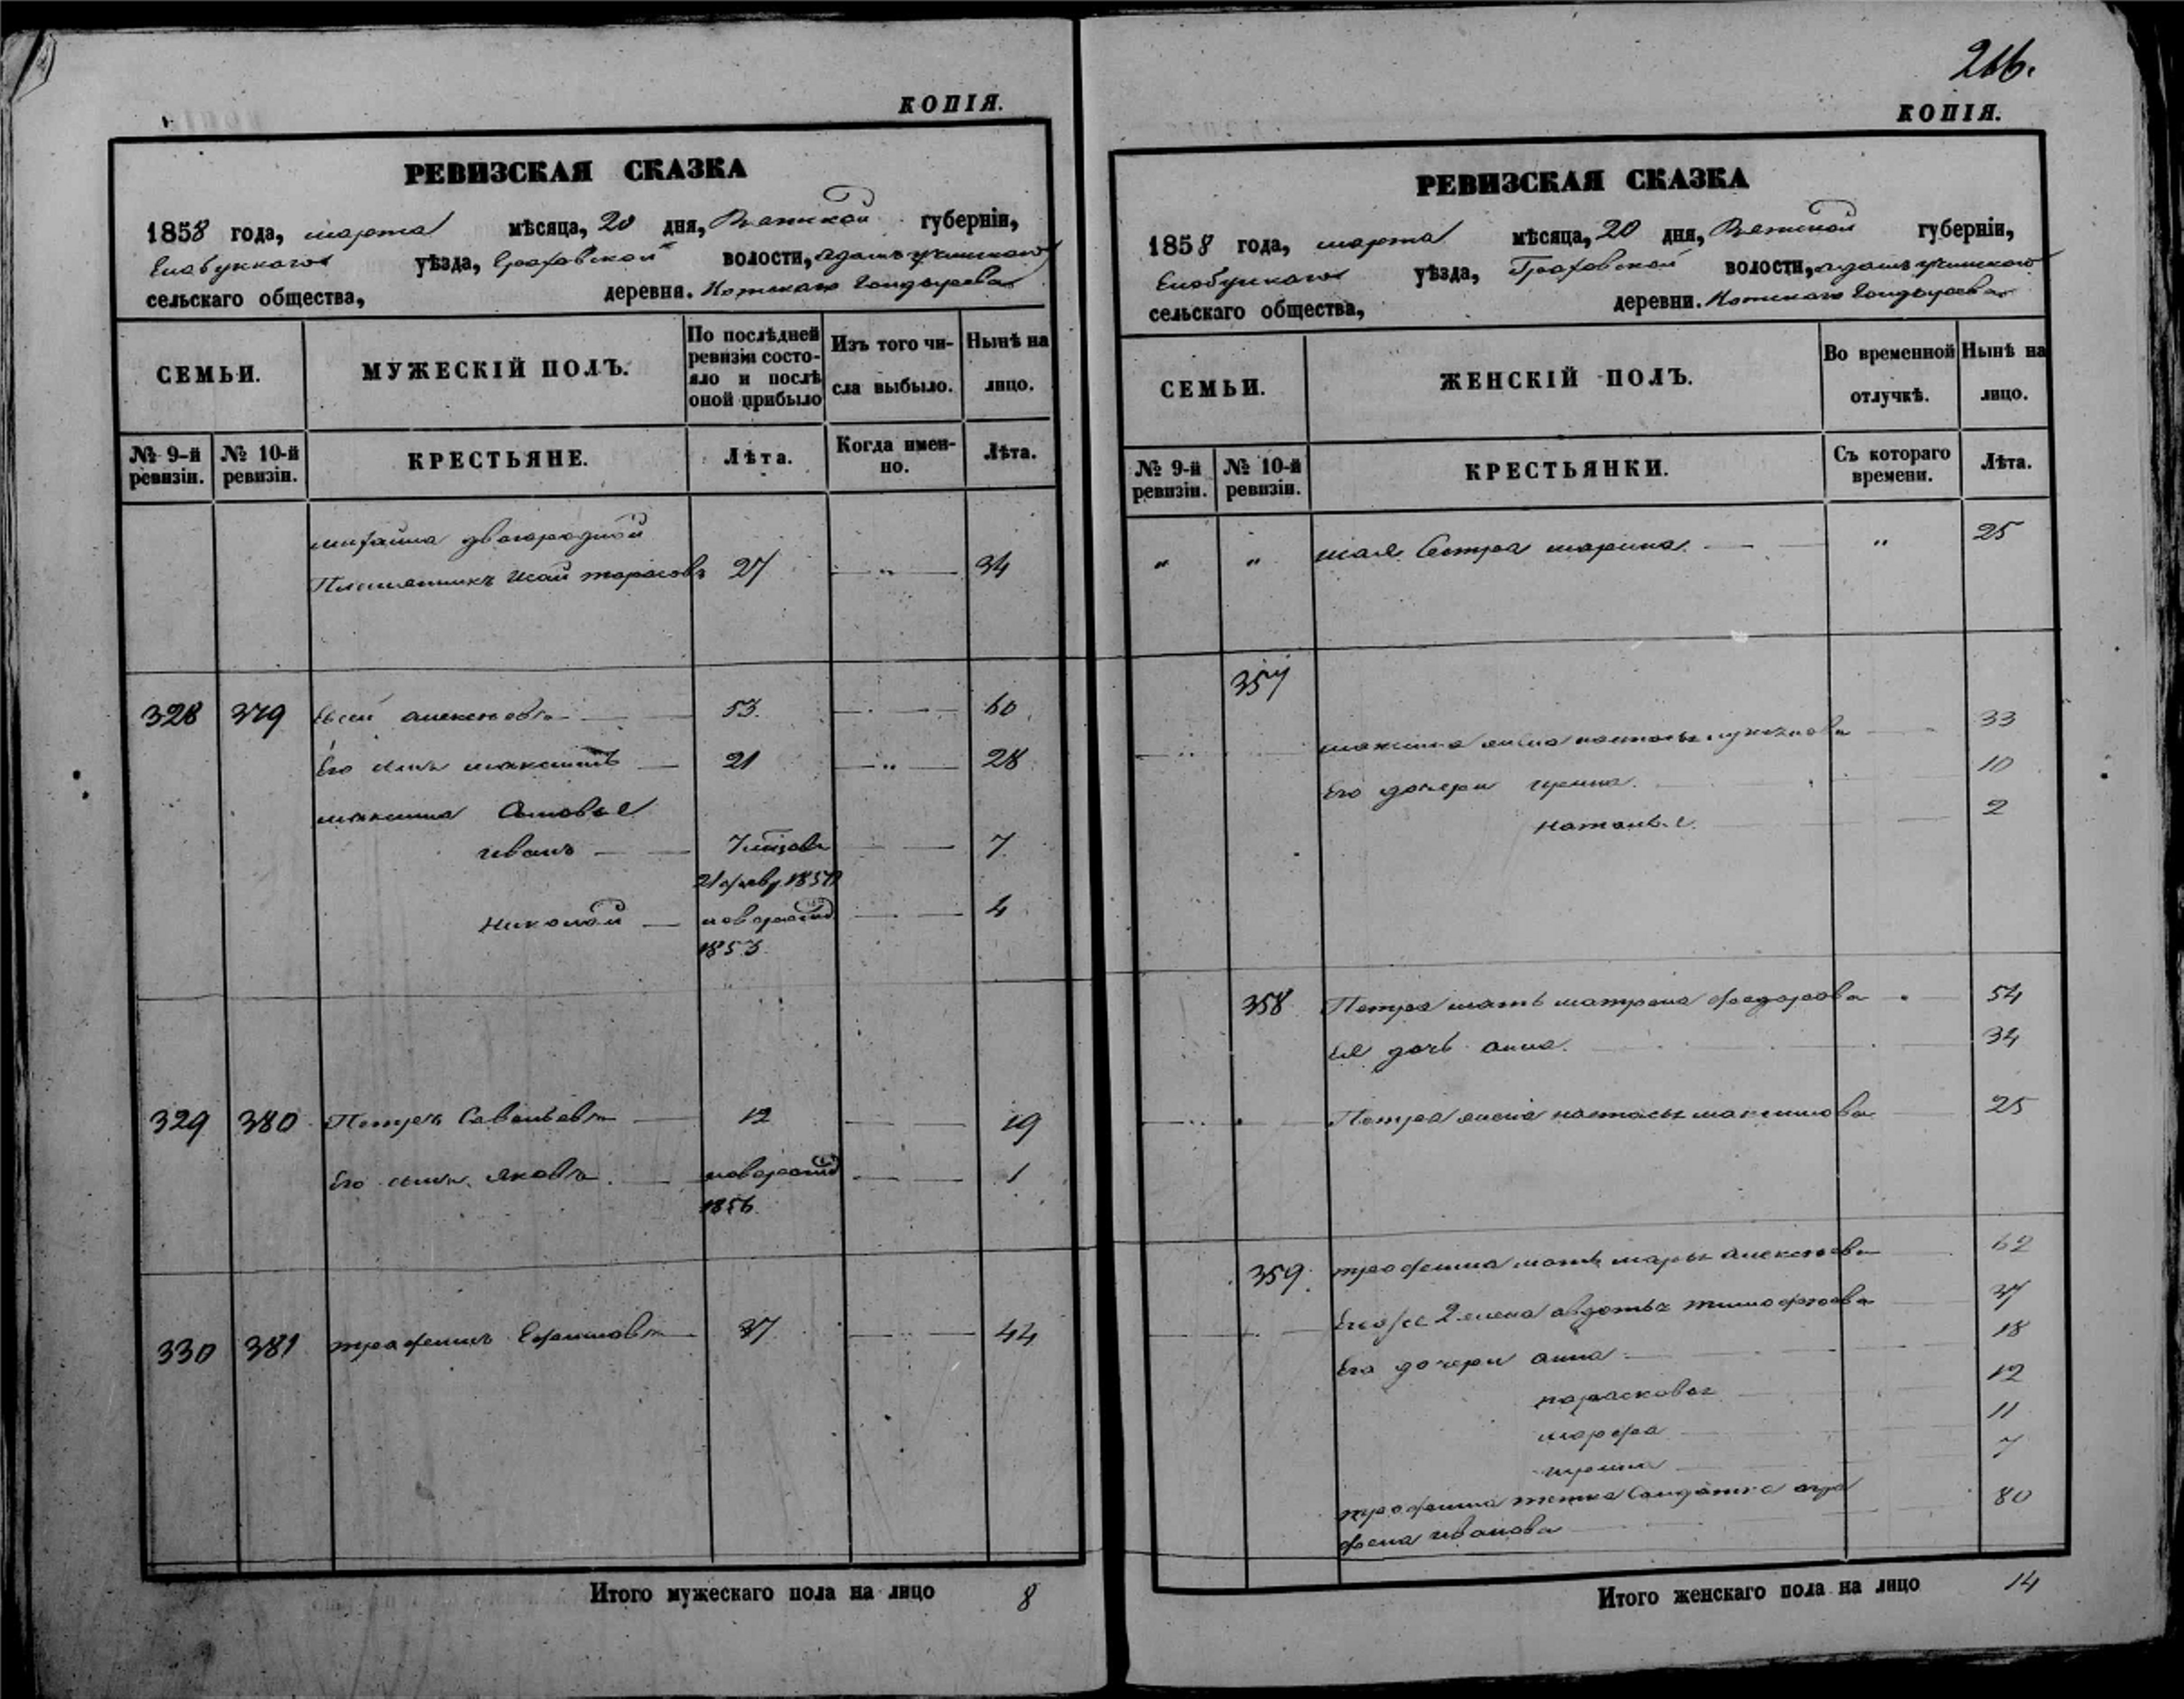 КОПІЯ.
РЕВИЗСКАЯ СКАЗКА
1858 года, марта мѣсяца, 20 дня, Вятской губерніи,
Елабужскаго уѣзда, Граховской волости,
сельскаго общества, деревни.
СЕМЬИ.
МУЖЕСКІЙ ПОЛЪ.
По послѣдней ревизіи состояло и послѣ оной прибыло
Изъ того числа выбыло.
Нынѣ на лицо.
№ 9-й ревизіи.
№ 10-й ревизіи.
КРЕСТЬЯНЕ.
Лѣта.
Когда именно.
Лѣта.
Михайла двоюродной
Племянникъ Тарасовъ 27 " 34
328 379 Алексѣевъ 53 60
Его сынъ Максимъ 21 " 28
Максима Сыновья
Иванъ 7
Николай новорожд 4
1853
329 380 Петръ Савельевъ 12 19
Его сынъ Яковъ новорожд 1
1856
330 381 Трофимъ Ефимовъ 37 44
Итого мужескаго пола на лицо 8
216.
КОПІЯ.
РЕВИЗСКАЯ СКАЗКА
1858 года, марта мѣсяца, 20 дня, Вятской губерніи,
Елабужскаго уѣзда, Граховской волости,
сельскаго общества, деревни.
СЕМЬИ.
ЖЕНСКІЙ ПОЛЪ.
Во временной отлучкѣ.
Нынѣ на лицо.
№ 9-й ревизіи.
№ 10-й ревизіи.
КРЕСТЬЯНКИ.
Съ котораго времени.
Лѣта.
" " Сестра Марина " 25
357
Максима жена Настасья 33
Его дочери Ирина 10
Наталья 2
358 Петра мать Матрена Федорова 54
Ея дочь Анна. 34
Петра жена Настасья Максимова 25
359. Трофима мать Марья Алексѣева 62
2 жена Авдотья Тимофѣева 37
Его дочери Анна 18
Парасковья 12
Марфа 11
Ирина 7
Трофима тетка Солдатка Агра
фена Иванова 80
Итого женскаго пола на лицо 14